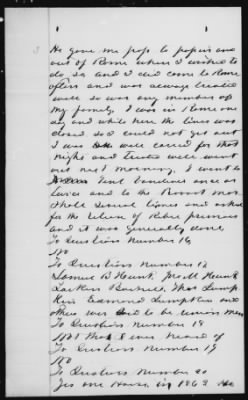 He gave me pass to pass in and
out of Rome when I wished to
do so and I did come to Rome
often and was always treated
well so was any member of
my family. I was in Rome one
day and while here the lines was
closed so I could not get out
I was well cared for that
night and treated well went
out next morning. I went to
Genl Vandever once or
twice and to the Provost mar
shall several times and asked
for the release of Rebel prisoners
and it was generally done.
To Question Number 16
No
To Question Number 17
Samuel B Hunt,
Larkin Thos Lump
kin Edmond Lumpkin and
others was said to be union men
To Question Number 18
Not that I ever heard of
To Question Number 19
No
To Question Number 20
Yes one Horse in 1863 He